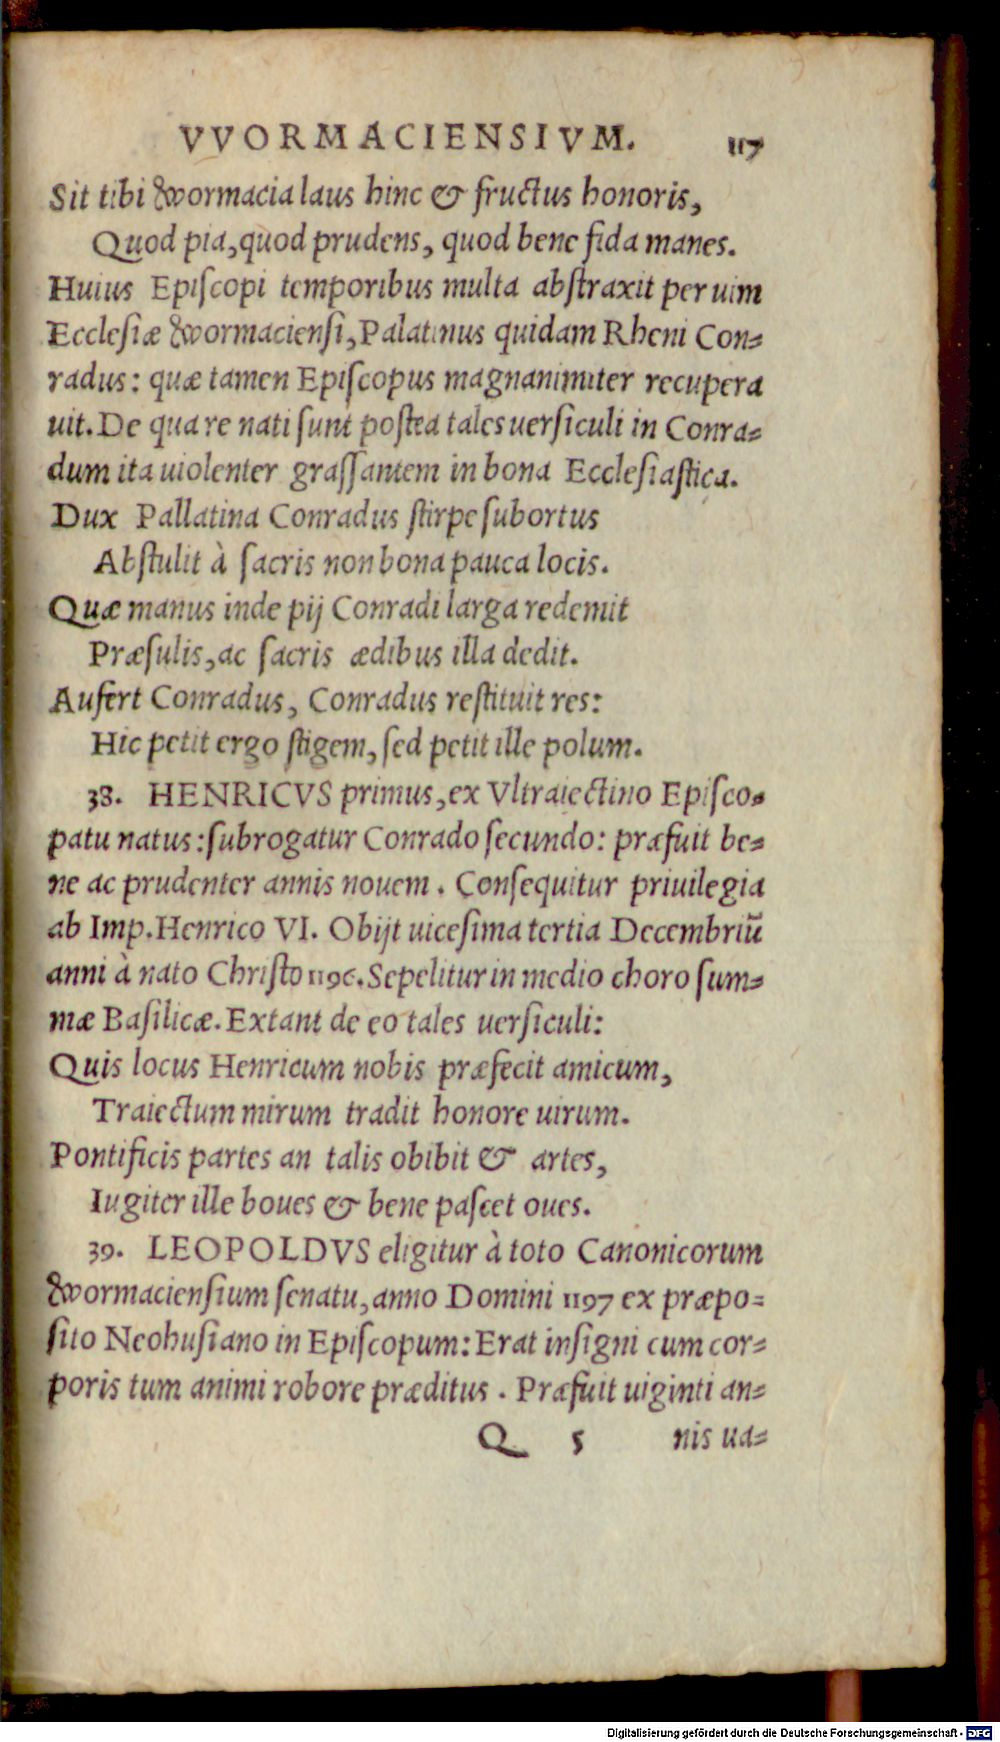 VVORMACIENSIVM. 117
Sit tibi wormacia laus hinc & fructus honoris,
Quod pia, quod prudens, quod bene fida manes.
Huius Episcopi temporibus multa abstraxit per uim
Ecclesiæ wormaciensi, Palatinus quidam Rheni Con-
radus: quæ tamen Episcopus magnanimiter recupera
uit. De qua re nati sunt postea tales uersiculi in Conra-
dum ita uiolenter grassantem in bona Ecclesiastica.
Dux Pallatina Conradus stirpe subortus
Abstulit à sacris non bona pauca locis.
Quæ manus inde pij Conradi larga redemit
Præsulis, ac sacris ædibus illa dedit.
Aufert Conradus, Conradus restituit res:
Hic petit ergo stigem, sed petit ille polum.
38. HENRICVS primus, ex Vltraiectino Episco-
patu natus: subrogatur Conrado secundo: præfuit be-
ne ac prudenter annis nouem. Consequitur priuilegia
ab Imp. Henrico VI. Obijt uicesima tertia Decembriū
anni à nato Christo 1196. Sepelitur in medio choro sum-
mæ Basilicæ. Extant de eo tales uersiculi:
Quis locus Henricum nobis præfecit amicum,
Traiectum mirum tradit honore uirum.
Pontificis partes an talis obibit & artes,
Iugiter ille boues & bene pascet oues.
39. LEOPOLDVS eligitur à toto Canonicorum
wormaciensium senatu, anno Domini 1197 ex præpo-
sito Neohusiano in Episcopum: Erat insigni cum cor-
poris tum animi robore præditus. Præfuit uiginti an-
Q 5 nis ua-
Digitalisierung gefördert durch die Deutsche Forschungsgemeinschaft - DFG